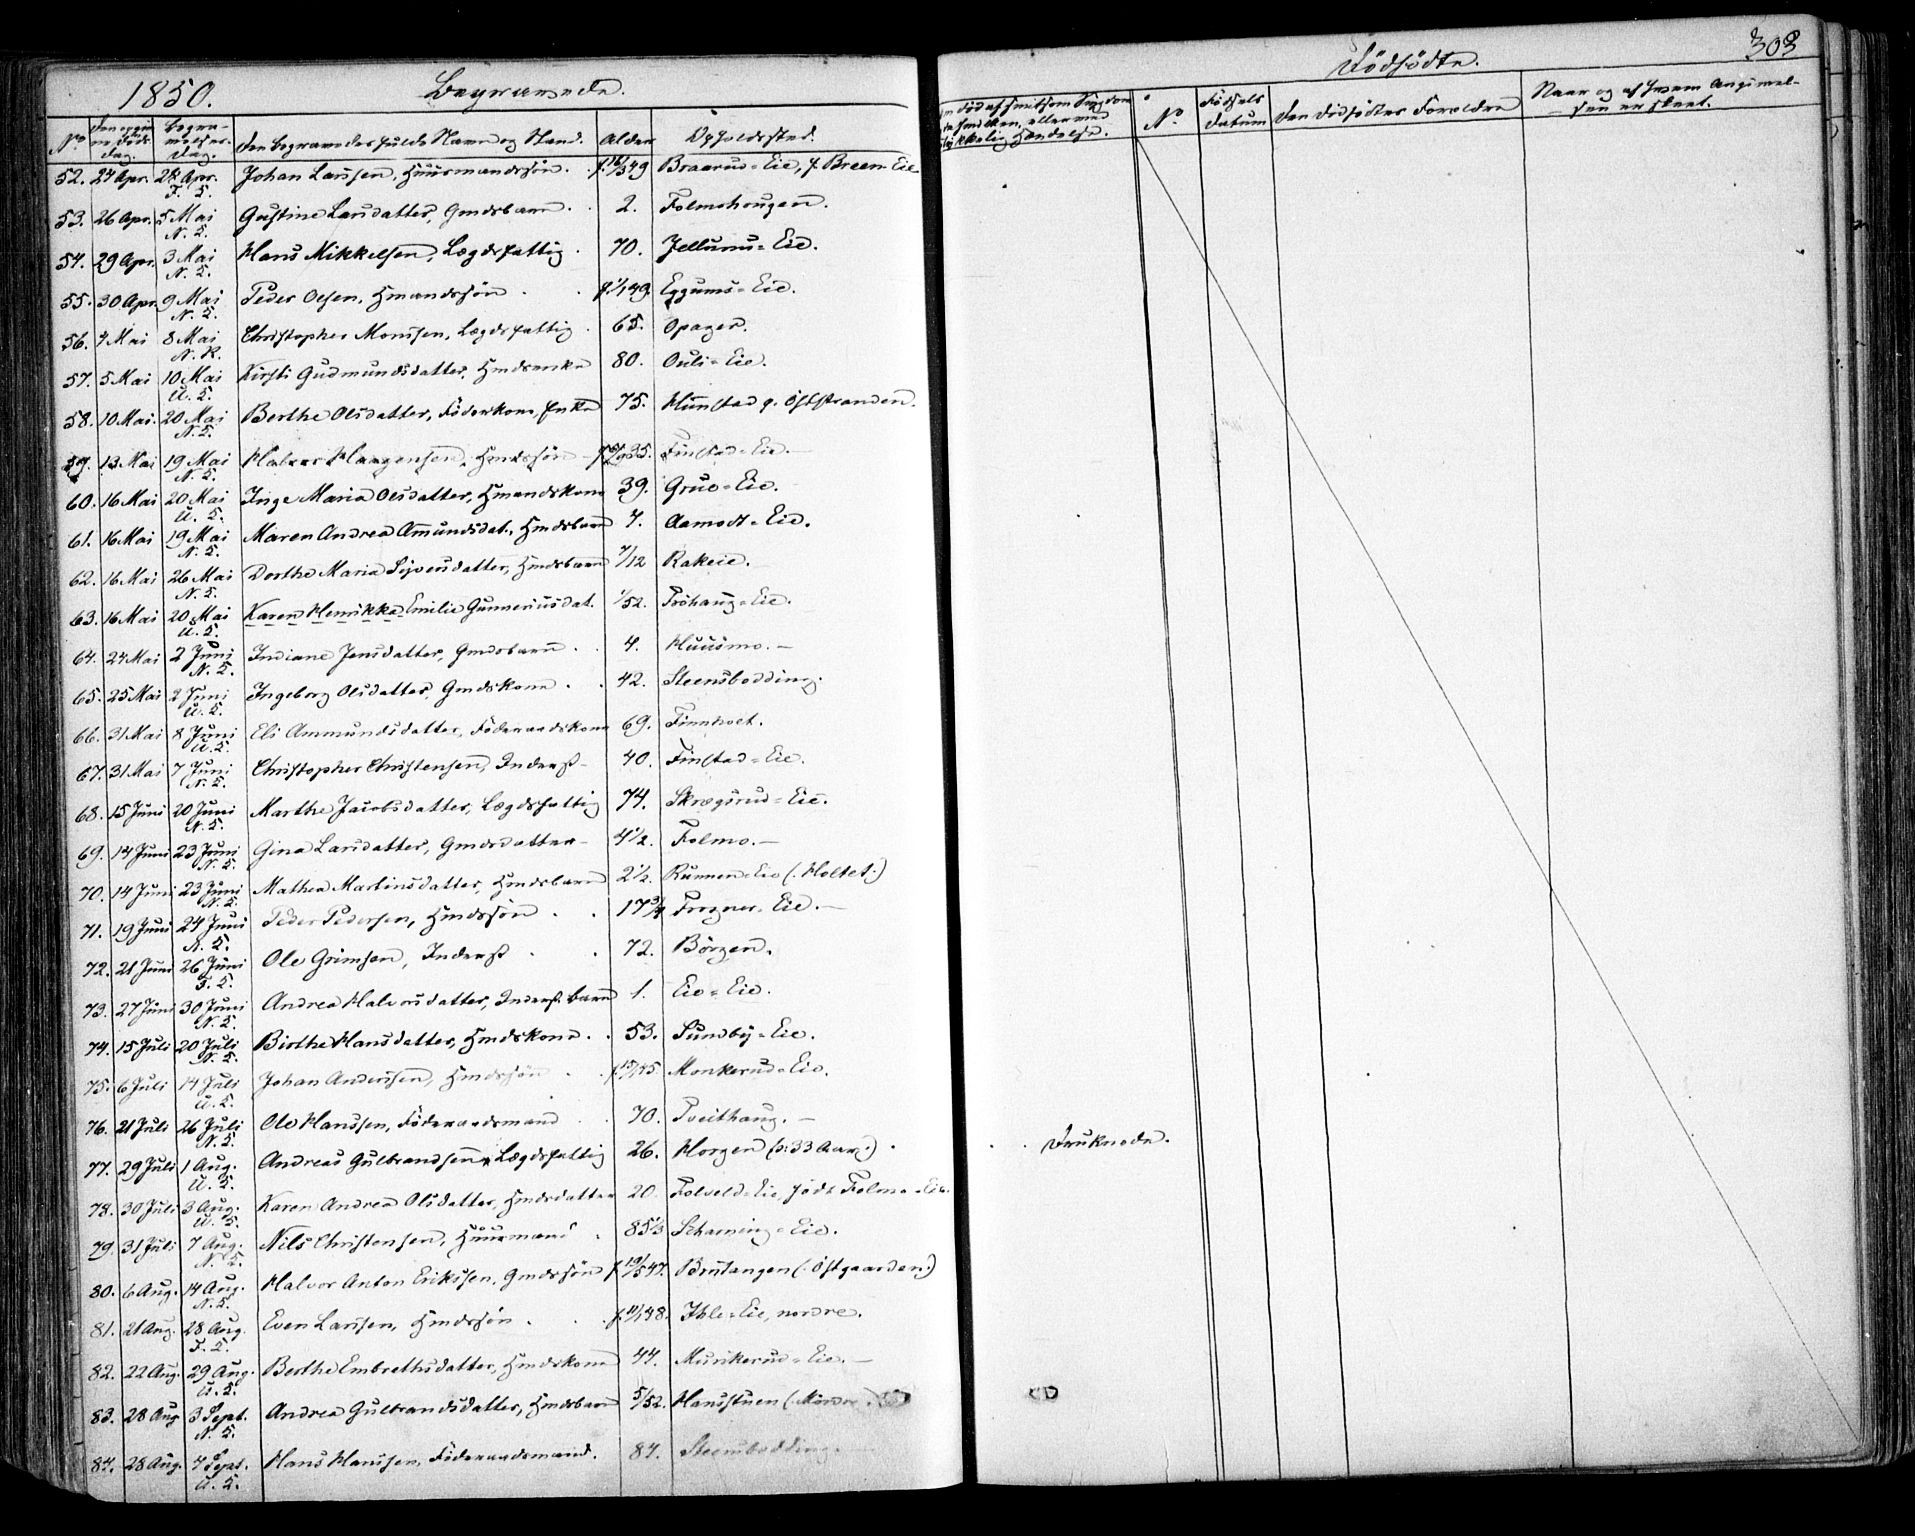 1850. Begravede.
No Den opgivne Døds Dag. Begravelses-Dag. Den Begravedes fulde Navn og Stand. Alder Opholdssted.
52. 24 Apr. 28 Apr. Johan Larssen, Huusmandssøn. f. 16/3 49 Braarud-Eie, f. Breen-Eie
F. K.
53. 26 Apr. 5 Mai Gustine Larsdatter, Gmdsbarn. 2. Folmohougen.
N. K.
54. 29 Apr. 3 Mai Hans Mikkelsen, Lægdsfattig. 70. Jellums-Eie.
N. K.
55. 30 Apr. 9 Mai Peder Olsen, Hmandssøn f. 1/1 49. Eggums-Eie.
N. K.
56. 4 Mai 8 Mai Christopher Monssen, Lægdsfattig. 65. Opager.
N. K.
57. 5 Mai 10 Mai Kirsti Gudmundsdatter, Hmdsenke 80. Ouli-Eie.
U. K.
58. 10 Mai. 20 Mai Berthe Olsdatter, Föderkone, Enke 75. Hunstad p. Öststranden.
N. K.
59. 13 Mai 19 Mai Halvor Haagensen, Hmdssøn 35. Finstad-Eie.
N. K.
60. 16 Mai 20 Mai Inge Maria Olsdatter, Hmandskone 39. Grue-Eie.
U. K.
61. 16 Mai 19 Mai Maren Andrea Amundsdat., Hmdsbarn 7. Aamodt-Eie.
N. K.
62. 16 Mai 26 Mai Dorthe Maria Syversdatter, Hmdsbarn 7/12 Rakeie.
N. K.
63. 16 Mai 20 Mai Karen Henrikka Emilie Gunneriusdat. 1/52. Fröhaug-Eie.
U. K.
64. 24 Mai 2 Juni Indiane Jensdatter, Gmdsbarn. 4. Huusmo.
N. K.
65. 25 Mai 2 Juni Ingeborg Olsdatter, Gmdskone. 42. Steensbodding.
U. K.
66. 31 Mai 8 Juni Eli Ammundsdatter, Föderaadskone 69. Finnholt.
U. K.
67. 31 Mai 7 Juni Christopher Christensen, Inderst 40. Finstad-Eie.
N. K.
68. 15 Juni 20 Juni Marthe Jacobsdatter, Lægdsfattig 74. Skrægsrud-Eie.
N. K.
69. 14 Juni 23 Juni Gina Larsdatter, Gmdsdatter 4 1/2. Folmo.
N. K.
70. 14 Juni 23 Juni Mathea Martinsdatter, Hmdsbarn 2 1/2. Runnen-Eie (: Holtet :)
N. K.
71. 19 Juni 24 Juni Peder Pedersen, Hmdssön 17 3/4 Frogner-Eie.
N. K.
72. 21 Juni 26 Juni Ole Grimsen, Inderst 72. Börgen.
F. K.
73. 27 Juni 30 Juni Andrea Halvorsdatter, Inderst. barn 1. Eie-Eie.
N. K.
74. 15 Juli 20 Juli Birthe Hansdatter, Hmdskone. 53. Sundby-Eie.
N. K.
75. 6 Juli 14 Juli Johan Anderssen, Hmdssøn f. 15/1 45. Monkerud-Eie.
U. K.
76. 21 Juli 26 Juli Ole Hanssen, Föderaadsmand 70. Tveithaug.
N. K.
77. 29 Juli 1 Aug. Andreas Gulbrandsen, Lægdsfattig 26. Horgen (o: 33 Aar :)
U. K.
78. 30 Juli 3 Aug. Karen Andrea Olsdatter, Hmdsdatter 20. Folveld-Eie, född Folmo-Eie.
U. K.
79. 31 Juli 7 Aug. Nils Christensen, Huusmand 85 1/3 Scharning-Eie.
N. K.
80. 6 Aug. 14 Aug. Halvor Anton Erikssen, Gmdssønn f. 19/5 47. Brutangen (: Östgaarden :)
N. K.
81. 21 Aug. 28 Aug. Even Larssen, Hmdssön f. 11/1 48. Ihle-Eie, nordre.
F. K.
82. 22 Aug. 29 Aug. Berthe Embrethsdatter, Hmdskone 44. Munkerud-Eie.
U. K.
83. 28 Aug 3 Sept. Andrea Gulbrandsdatter, Hmdsbarn 5/52. Hansstuen (: Nordre :)
N. K.
84. 28 Aug. 4 Sept. Hans Hanssen, Föderaadsmand. 84. Steensbodding.
U. K.
303
Dödfödte.
Om död af smitsom Sygdom
ulykkelig Hændelse.
No. Födsels Datum Den Dödfödtes Forældre Naar og af hvem Anmeldelsen er skeet.
Druknede.